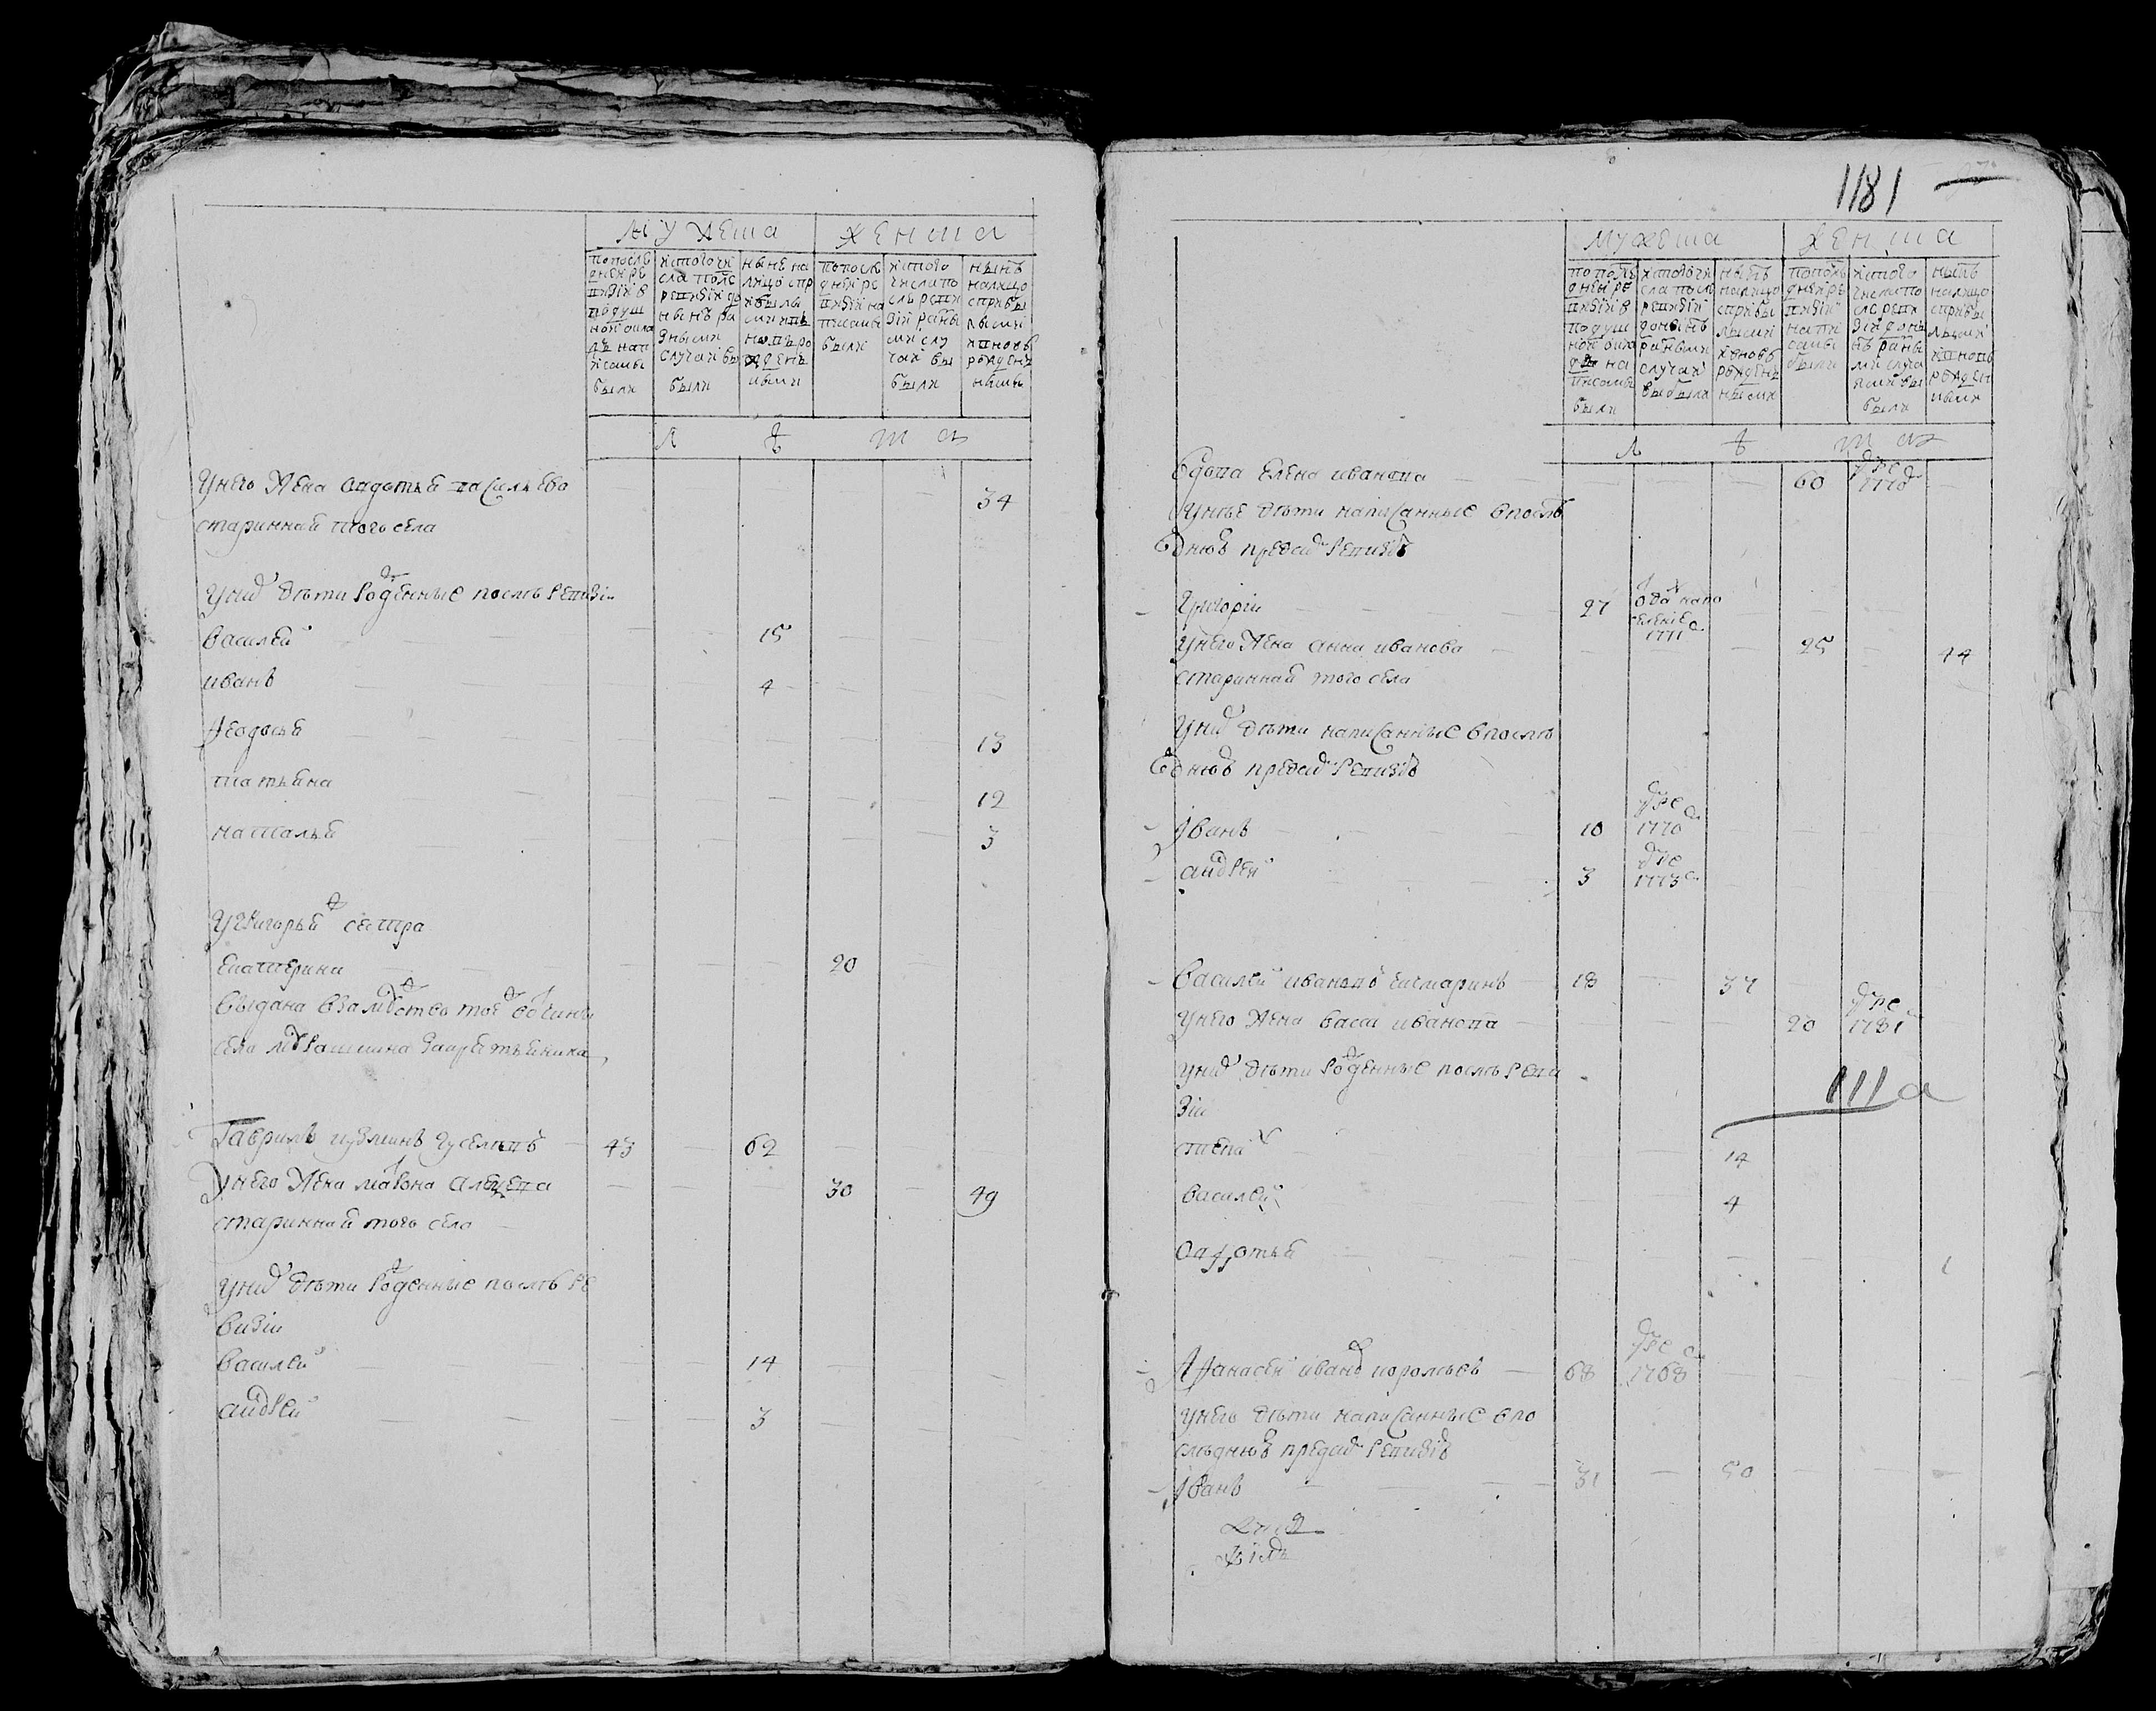 мужеска женска
попосле днеи ре визiи в подуш номъ окла де нап исаны были
ис того чи сла после ревизiи до ныне ра зными случаи вы были
ныне на лицо спр ибылы ми ипъ новъ ро жденъ ными
попосле днеи ре визiи на писаны были
ис того числа по сле реви зiи разны ми слу чаи вы были
ныне налицо сприбы лыми и вновь рожденъ ными
л ѣ т а
унего жена авдотья васильева 34
стариннай того села
уних дети рожденные после ревизiи
василеи 15
иванъ 4
феодосья 13
татьяна 12
наталья 3
у григорья сестра
екатерина 20
выдана взамужство тое вотчины
села
Гаврила кузминъ гуселевъ 43 62
Унего жена матрона алексеева 30 49
стариннай того села
уних дети рожденные после ре
визiи
василеи 14
андреи 3
1181
мужеска женска
по после днеи ре визiи в подуш номъ окла де на писаны были
ис того чи сла после ревизiи доныне разными случаи выбыли
ныне налицо сприбы лыми и новъ рожденъ ными
попосле днеи ре визiи напи саны были
ис того числа по сле реви зiи доны не разны ми случа ями вы были
ныне налицо сприбы лыми и вновь рожден ными
л ѣ т а
вдова елена иванова 60 умре 1770
унее дети написанные впосле
днюю пред сим ревизiю
григореи 27 отдан на поселение 1771
унего жена анна иванова 25 44
стариннай того села
уних дети написанные впосле
днюю пред сим ревизiю
Iванъ 10 умре 1770
андреи 3 умре 1773
василеи ивановъ 18 37
унего жена васса иванова 20 умре 1781
уних дети рожденные после реви
зiи
111а
степан 14
василеи 4
авдотья 1
Афанасеи иванов королевъ 68 умре 1768
унего дети написанные впо
следнюю пред сим ревизiю
Iванъ 31 50